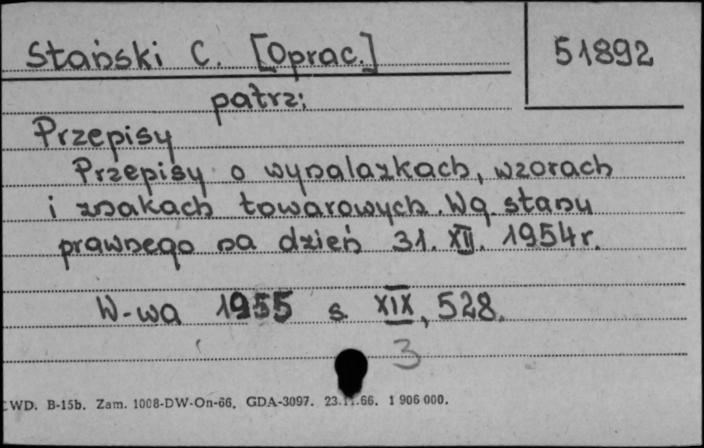 Stański C. [Oprac.] 51892
patrz:
Przepisy
Przepisy o wynalazkach, wzorach
i znakach towarowych. Wg. stanu
prawnego na dzień 31. XII. 1954 r.
W-wa 1955 s. XIX, 528.
3
CWD. B-15b. Zam. 1008-DW-On-66. GDA-3097. 23.11.66. 1 906 000.